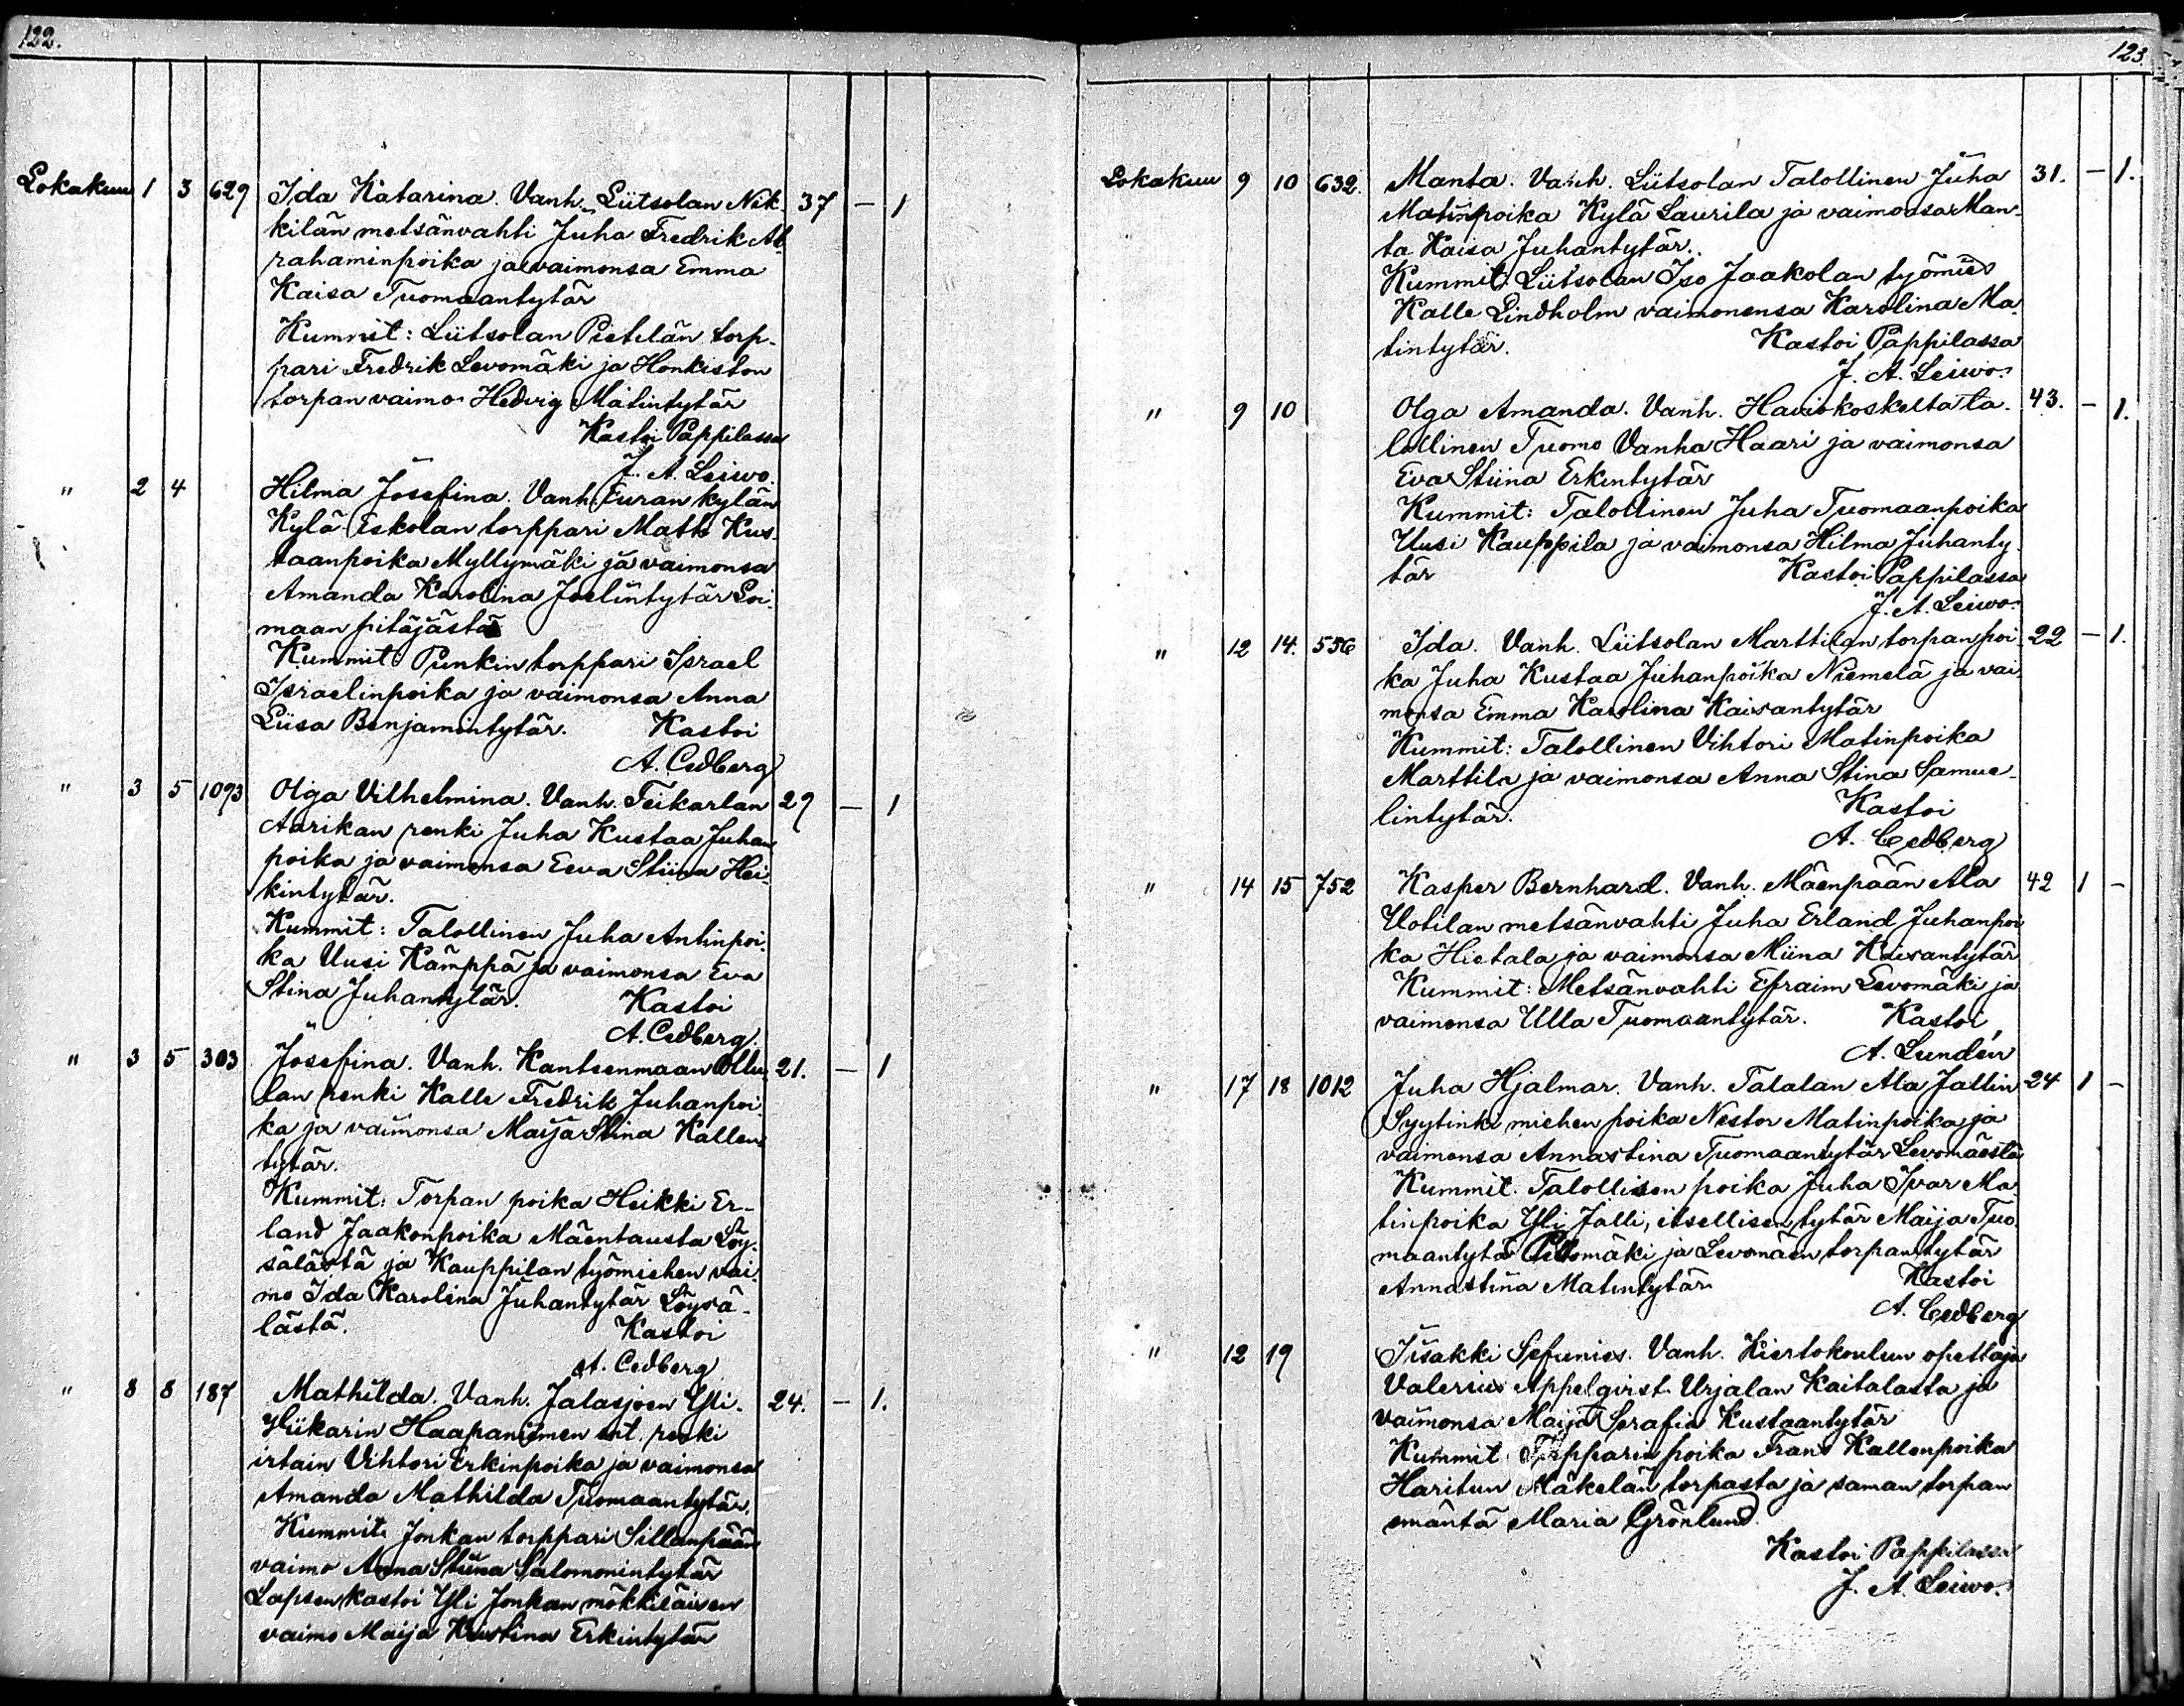 122.
Lokakuu 1 3 629 Ida Katarina. Vanh. Liitsolan Nik- 37 — 1
kilän metsänvahti Juha Fredrik Ab-
rahaminpoika ja vaimonsa Emma
Kaisa Tuomaantytär
Kummit: Liitsolan Pietilän torp-
pari Fredrik Levomäki ja Honkiston
torpan vaimo Hedvig Matintytär
Kastoi Pappilassa
J. A. Leiwo.
" 2 4 Hilma Josefina. Vanh. Euran kylän
Kylä Eskolan torppari Matti Kus-
taanpoika Myllymäki ja vaimonsa
Amanda Karolina Joelintytär Loi-
maan pitäjästä
Kummit: Punkin torppari Israel
Israelinpoika ja vaimonsa Anna
Liisa Benjamintytär. Kastoi
A. Cedberg
" 3 5 1093 Olga Vilhelmina. Vanh. Teikarlan 29 — 1
Aarikan renki Juha Kustaa Juhan
poika ja vaimonsa Eeva Stiina Hei-
kintytär.
Kummit: Talollinen Juha Antinpoi-
ka Uusi Kämppä ja vaimonsa Eva
Stina Juhantytär. Kastoi
A. Cedberg.
" 3 5 303 Josefina. Vanh. Kantsenmaan Ollu- 21. — 1
lan renki Kalle Fredrik Juhanpoi-
ka ja vaimonsa Maija Stina Kallen-
tytär.
Kummit: Torpan poika Heikki Er-
land Jaakonpoika Mäentausta Löy-
sälästä ja Kauppilan työmiehen vai-
mo Ida Karolina Juhantytär Löysä-
lästä. Kastoi
A. Cedberg
" 8 8 187 Mathilda. Vanh. Jalasjoen Yli- 24. — 1.
Hiikarin Haapaniemen ent. renki
irtain Vihtori Erkinpoika ja vaimonsa
Amanda Mathilda Tuomaantytär.
Kummit: Jonkan torppari Sillanpään
vaimo Anna Stiina Salomonintytär
Lapsen kastoi Yli Jonkan mökkiläisen
vaimo Maija Kristina Erkintytär
123.
Lokakuu 9 10 632. Manta. Vanh. Liitsolan Talollinen Juha 31. — 1.
Matinpoika Kylä Laurila ja vaimonsa Man-
ta Kaisa Juhantytär.
Kummit: Liitsolan Iso Jaakolan työmies
Kalle Lindholm vaimonensa Karolina Ma-
tintytär. Kastoi Pappilassa
J. A. Leiwo.
" 9 10 Olga Amanda. Vanh. Haviokoskelta ta- 43. — 1.
lollinen Tuomo Vanha Haari ja vaimonsa
Eva Stiina Erkintytär
Kummit: Talollinen Juha Tuomaanpoika
Uusi Kauppila ja vaimonsa Hilma Juhanty-
tär Kastoi Pappilassa
J. A. Leiwo.
" 12 14. 556 Ida. Vanh. Liitsolan Marttilan torpan poi- 22 — 1.
ka Juha Kustaa Juhanpoika Niemelä ja vai-
monsa Emma Karolina Kaisantytär
Kummit: Talollinen Vihtori Matinpoika
Marttila ja vaimonsa Anna Stina Samue-
lintytär. Kastoi
A. Cedberg
" 14 15 752 Kasper Bernhard. Vanh. Mäenpään Ala 42 1 —
Uotilan metsänvahti Juha Erland Juhanpoi
ka Hietala ja vaimonsa Miina Kaisantytär
Kummit: Metsänvahti Efraim Levomäki ja
vaimonsa Ulla Tuomaantytär. Kastoi
A. Lundén
" 17 18 1012 Juha Hjalmar. Vanh. Talalan Ala Jallin 24 1 —
Syytinki miehen poika Nestor Matinpoika ja
vaimonsa Annastina Tuomaantytär Levomäestä
Kummit. Talollisen poika Juha Ivar Ma-
tinpoika Yli Jalli, itsellisen tytär Maija Tuo-
maantytär ja Levomäen torpan tytär
Annastiina Matintytär. Kastoi
A. Cedberg
" 12 19 Iisakki Sefunies. Vanh. Kiertokoulun opettaja
Valerius Appelqvist Urjalan Kaitalasta ja
vaimonsa Maija Serafia Kustaantytär
Kummit Torpparin poika Frans Kallenpoika
Haritun Mäkelän torpasta ja saman torpan
emäntä Maria Grönlund.
Kastoi Pappilassa
J. A. Leiwo.